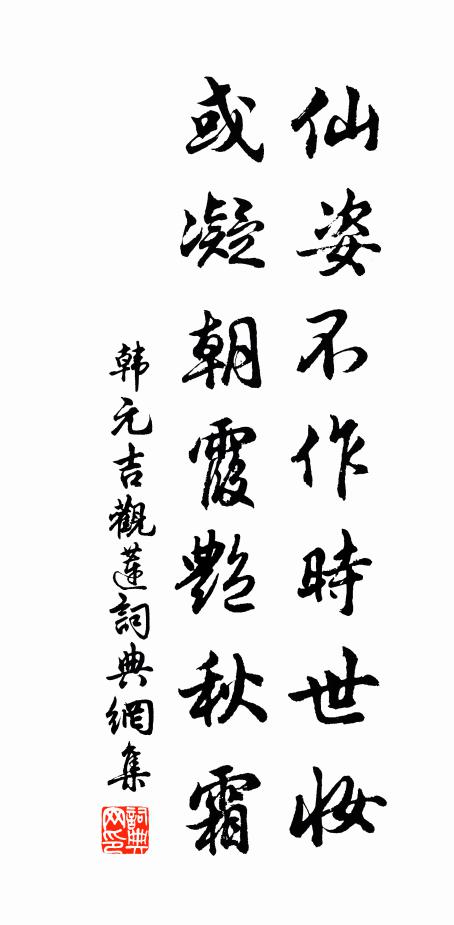 仙姿不作時世妝
或凝朝霞艷秋霜
韩元吉觀蓮詞典網集
詞典网印